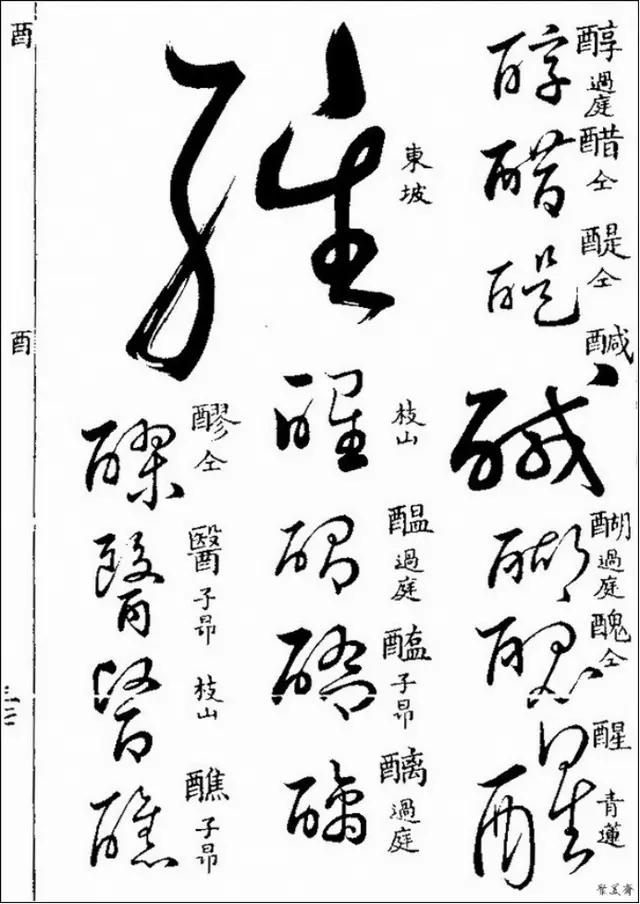 酉
酉
醇 過庭
醋 仝
醍 仝
醎
醐 過庭
醜 仝
醒 青蓮
東坡
枝山
醖 過庭
醢 子昂
醨 過庭
醪 仝
醫 子昂
枝山
醮 子昂